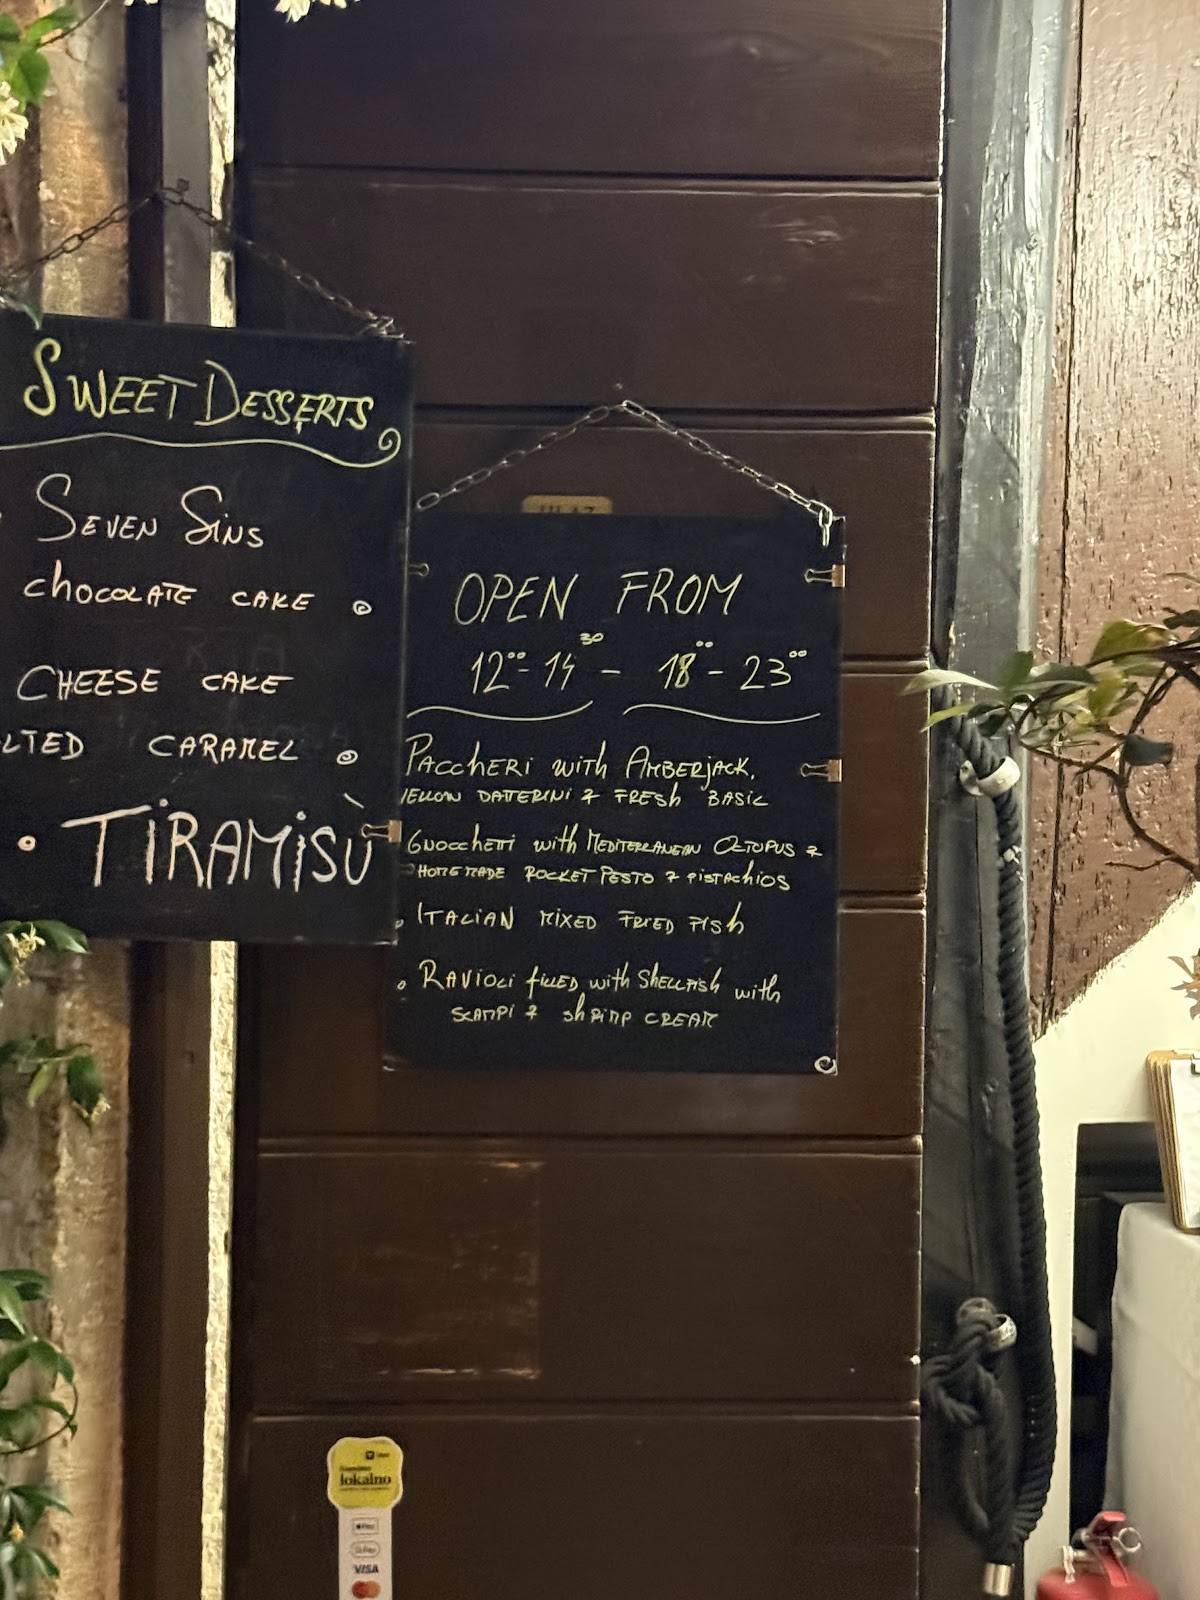 SWEET DESSERTS
SEVEN SiNS
chocolATE CAKE
CHEESE CAKE
LTED CARAMEL
TiRAMiSÙ
OPEN FROM
12⁰⁰-14³⁰ - 18⁰⁰-23⁰⁰
PACCHERI WITH AMBERJACK,
YELLOW DATTERINI & FRESH BASIC
GNOCCHETTI with MEDITERRANEAN OCTOPUS &
HOMEMADE ROCKET PESTO & PISTACHIOS
ITALIAN MIXED FRIED FISH
RAVIOLI FILLED with SHELLFISH with
SCAMPI & SHRIMP CREAM
lokalno
Pay
G Pay
VISA